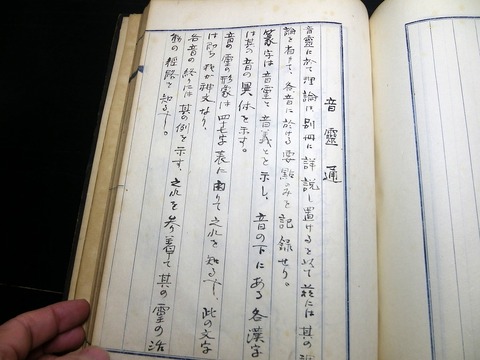 音靈通
音靈に於て理論は別冊に詳説し置けるを以て茲には其の理
論を省きて、各音に於ける要點のみを記録せり。
篆字は音靈と音義とを示し、音の下にある各漢字
は其の音の異体を示す。
音の靈の形象は四十七字表に由りて之れを知るべし、此の文字
は即ち我が神文なり。
各音の終には其の例を示す、之れを参考して其の靈の活
動の経路を知るべし。